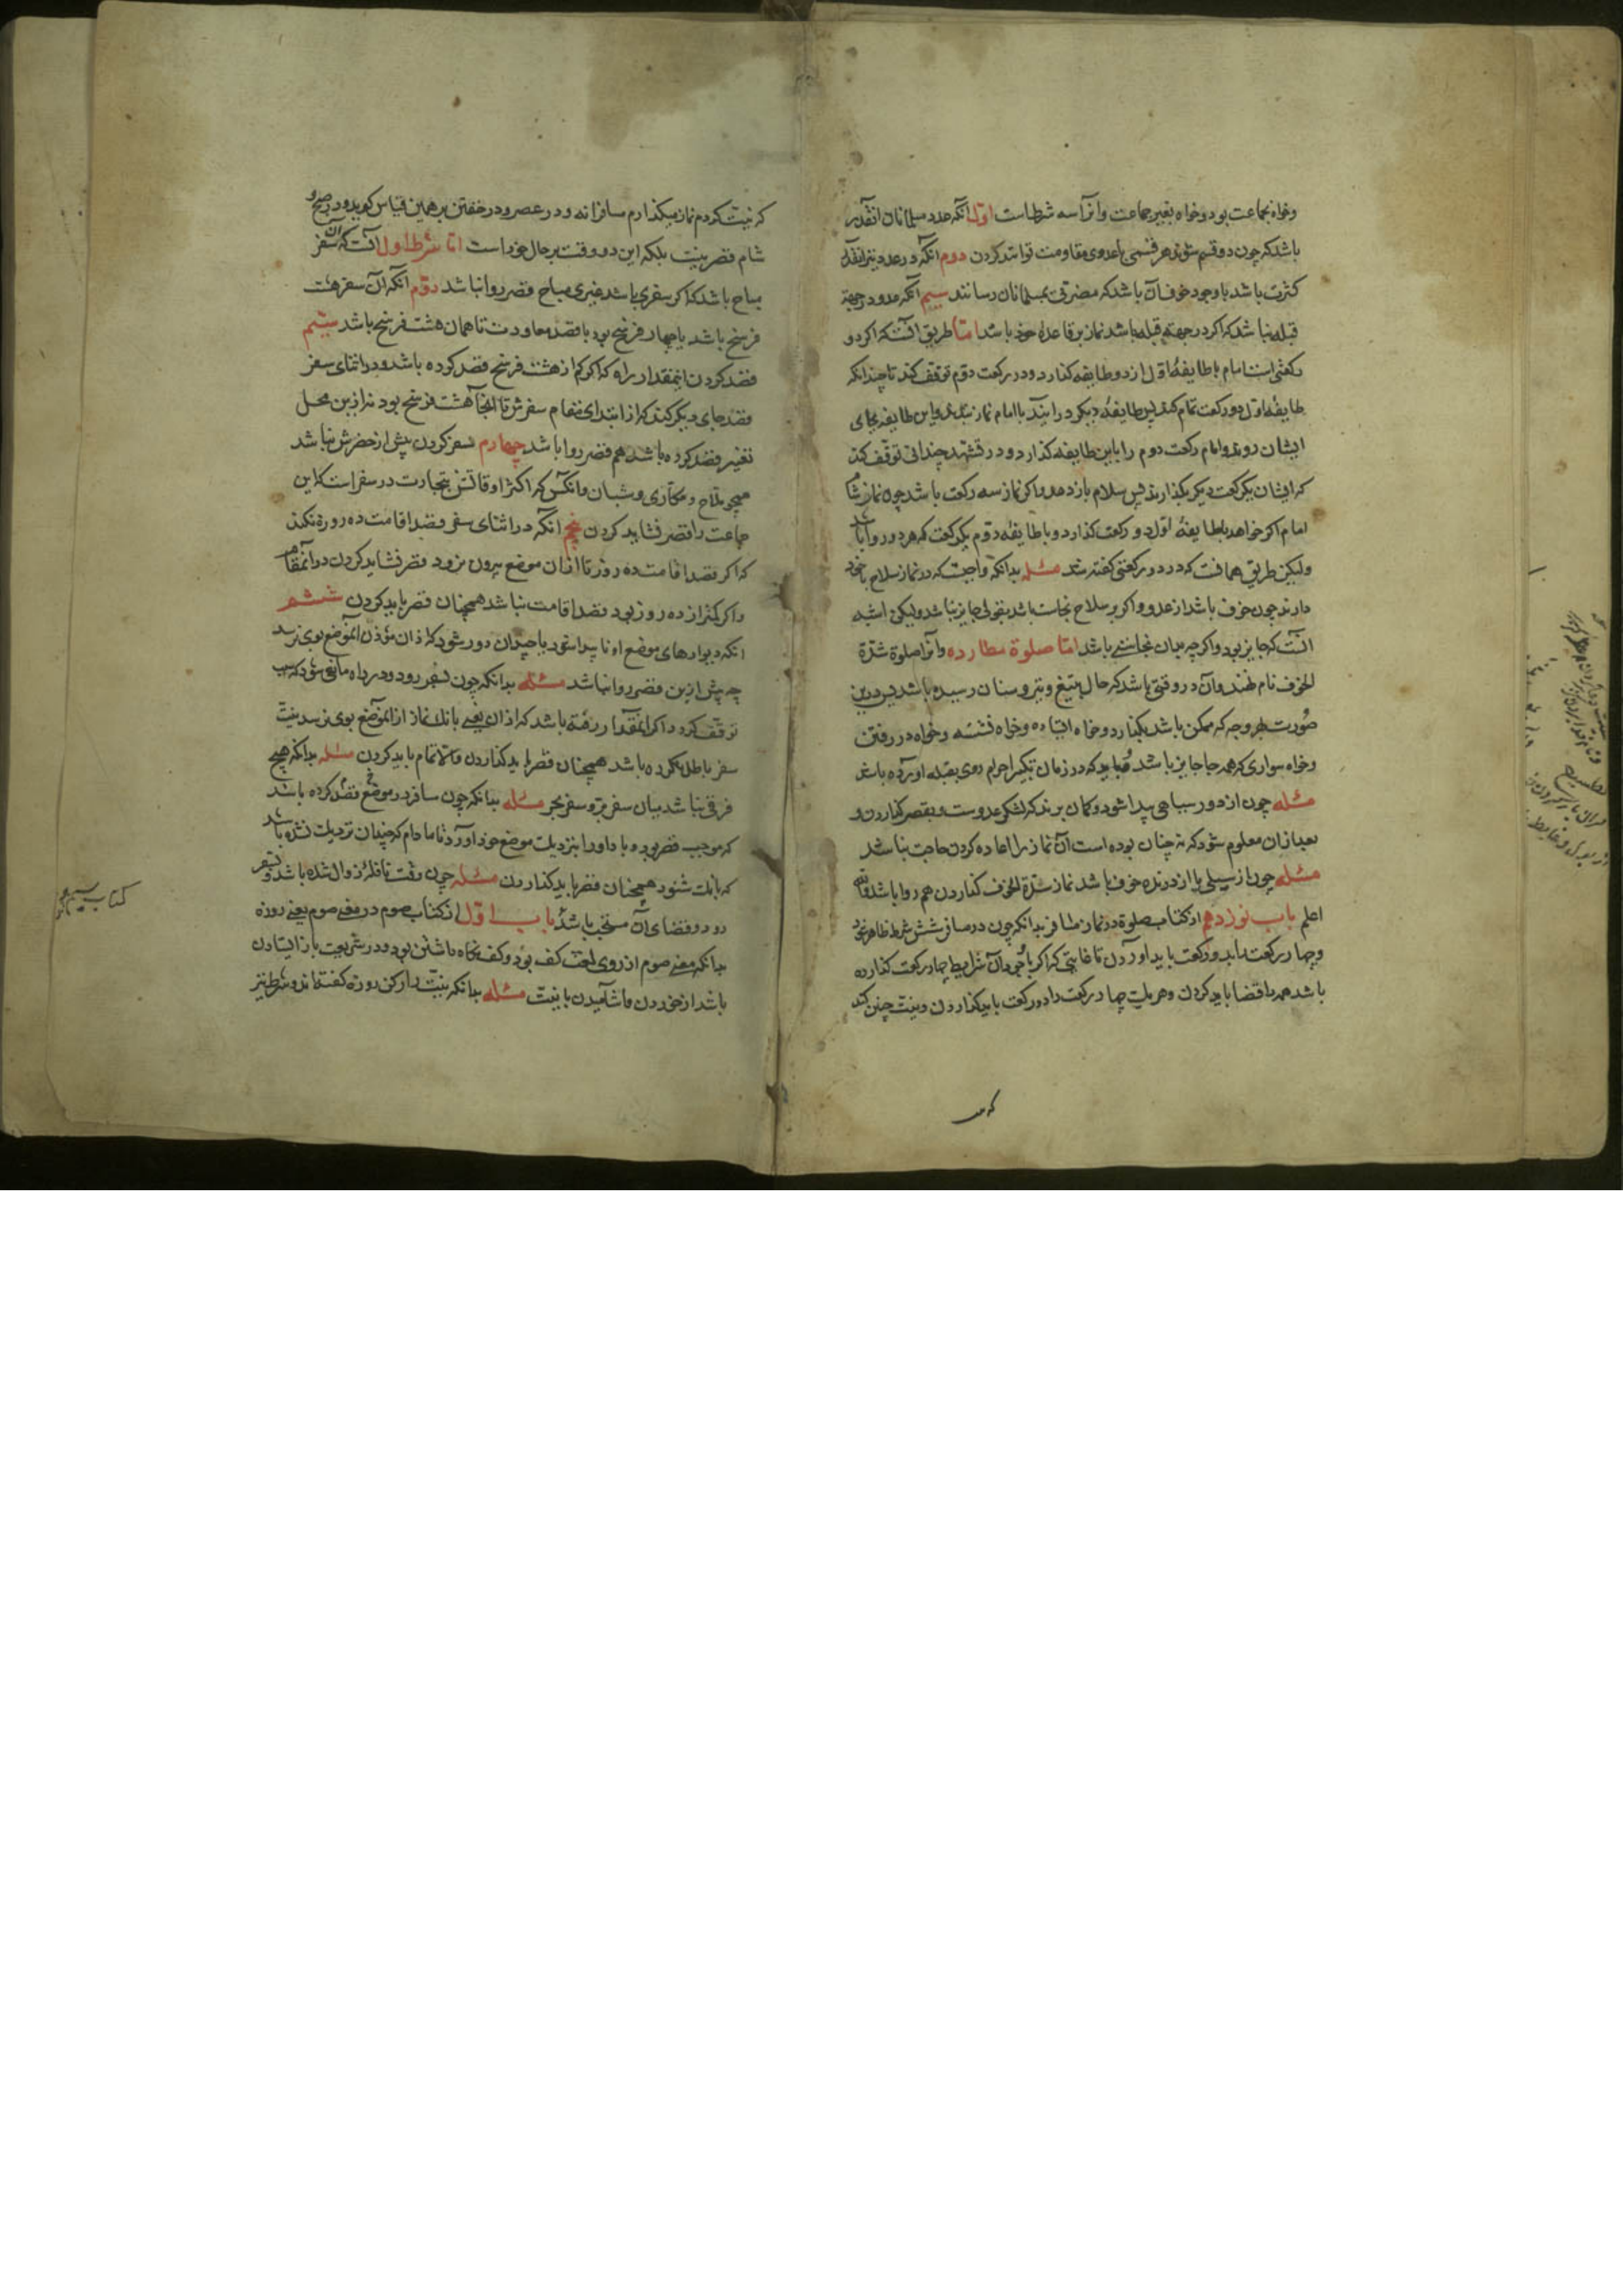 وخواه بجماعت بود وخواه بغیر جماعت وانرا سه شرطست اول انکه عدد مسلمانان انقدر
باشد که چون دو قسم شوند هر قسمی با عدوی مقاومت توانند کردن دوم انکه در عدد نیز انقدر
کثرت باشد با وجود خوف آن باشد که مضرتی بمسلمانان رسانند سیم انکه عدو در جهة
قبله نباشد که اکر در جهة قبله باشد نماز بر قاعده خود باشد اما طریق آنست که اکر دو
رکعتی است امام با طایفهٔ اول از دو طایفه کذارد و در رکعت دوم توقف کند تا چندانکه
طایفهٔ اول دو رکعت تمام کنند پس طایفهٔ دیکر درایند با امام نماز بندند و این طایفه بجای
ایشان روند و امام رکعت دوم را باین طایفه کذارد و در تشهد چندانی توقف کند
که ایشان یکرکعت دیکر بکذارند پس سلام باز دهد واکر نماز سه رکعت باشد چون نماز شام
امام اکر خواهد با طایفهٔ اول دو رکعت کذارد و با طایفهٔ دوم یکرکعت که هر دو روا باشد
ولیکن طریق همانست که در دو رکعتی کفته شد مسئله بدانکه واجبست که در نماز سلاح با خود
دارند چون خوف باشد از عدو واکر بر سلاح نجاست باشد بقولی جایز نباشد ولیکن اشبه
آنست که جایز بود واکرچه بدان نجاستی باشد اما صلوة مطارده وآنرا صلوة شدّة
الخوف نام نهند وآن در وقتی باشد که حال بتیغ و تیر و سنان رسیده باشد پس درین
صورت بهر وجه که ممکن باشد بکذارد و خواه ایستاده و خواه نشسته وخواه در رفتن
وخواه سواری که همه جا جایز باشد و باید که در زمان تکبیر احرام روی بقبله آورده باشد
مسئله چون از دور سیاهی پیدا شود وکمان برند که لشکر عدوست و بقصر کذاردن و
بعد ازان معلوم شود که نه چنان بوده است آن نماز را اعاده کردن حاجت نباشد
مسئله چون از سیلی یا از درنده خوف باشد نماز شدّة الخوف کذاردن هم روا باشد والله
اعلم باب نوزدهم از کتاب صلوة در نماز مسافر بدانکه چون در مسافر شش شرط ظاهر شود
وچهار رکعت را بدو رکعت باید آوردن تا غایتی که اکر با وجود آن شرایط چهار رکعت کذارده
باشد همه را قضا باید کردن وهر یک چهار رکعت را دو رکعت باید کذاردن ونیت چنین کند
که نیت
که نیت کردم نماز میکذارم مسافرانه و در عصر و در خفتن بر همین قیاس کوید و در صبح و
شام قصر نیست بلکه این دو وقت بر حال خود است اما شرط اول آنست که آن سفر
مباح باشد که اکر سفری باشد غیری مباح قصر روا نباشد دوّم انکه آن سفر هشت
فرسخ باشد یا چهار فرسخی بود با قصد معاودت تا همان هشت فرسخ باشد سیّم
قصد کردن اینمقدار راه که اکر کم از هشت فرسخ قصد کرده باشد ودر اثنای سفر
قصد جای دیکر کند که از ابتدای مقام سفرش تا آنجا هشت فرسخ بود نه ازین محل
تغییر قصد کرده باشد هم قصر روا باشد چهارم سفر کردن بیش از حضرش نباشد
همچو ملاح و مکاری و شبان وانکس که اکثر اوقاتش بتجارت در سفر است که این
جماعت را قصر نشاید کردن پنجم انکه در اثنای سفر قصد اقامت ده روزه نکند
که اکر قصد اقامت ده روز تا ازان موضع بیرون نرود قصر نشاید کردن در آنمقام
واکر کمتر از ده روز بود قصد اقامت نباشد همچنان قصر باید کردن ششم
انکه دیوارهای موضع او ناپیدا شود یا چندان دور شود که اذان مؤذن آنموضع بوی نرسد
چه پیش ازین قصر روا نباشد مسئله بدانکه چون بسفر رود و در راه مانعی شود که سبب
توقف کردد اکر آنمقدار رفته باشد که اذان یعنی بانک نماز از آنموضع بوی نرسد نیت
سفر باطل نکرده باشد همچنان قصر باید کذاردن والا تمام باید کردن مسئله بدانکه هیچ
فرقی نباشد میان سفر بر و سفر بحر مسئله بدانکه چون مسافر در موضعی قصد کرده باشد
که موجب قصر بود و باد او را بنزدیک موضع خود آورد تا مادام که چندان نزدیک نشده باشد
که بانک شنود همچنان قصر باید کذاردن مسئله چون وقت نافله زوال شده باشد و بسفر
رود و قضای آن مستحب باشد باب اول از کتاب صوم در معنی صوم یعنی روزه
بدانکه معنی صوم از روی لغت کف بود و کف نکاه داشتن بود و در شریعت باز ایستادن
باشد از خوردن و آشامیدن با نیت مسئله بدانکه نیت را رکن روزه کفته اند و شرط نیز
کتاب سیم